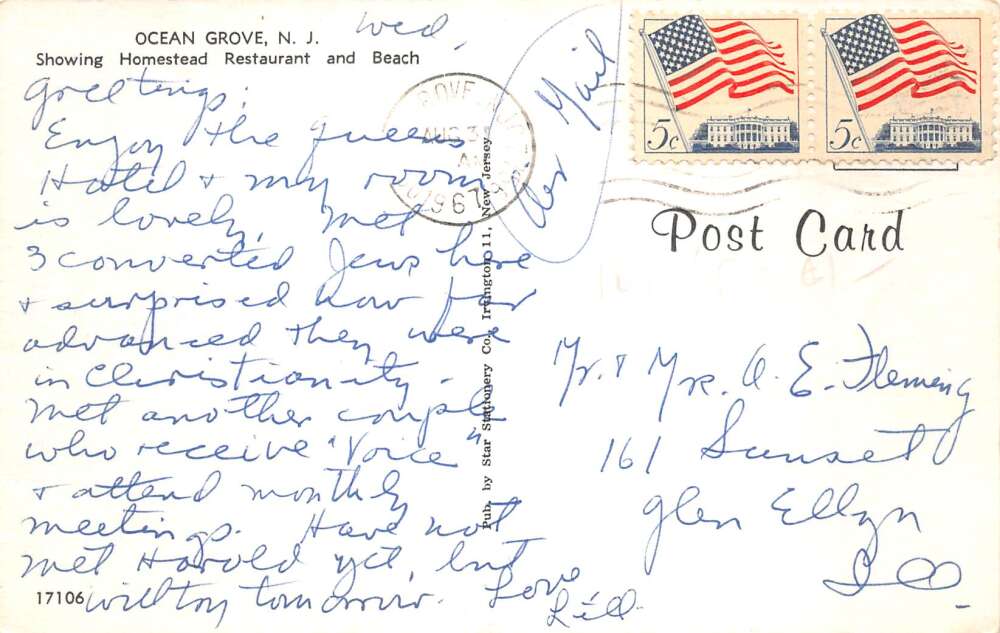 OCEAN GROVE, N. J.
Showing Homestead Restaurant and Beach
Wed,
Greetings:
Enjoy the Queens
Hotel & my room
is lovely, Met
3 converted Jews here
& surprised how far
advanced they were
in Christianity -
Met another couple
who receive "Voice"
& attend monthly
meetings. Have not
met Harold yet, but
will try tomorrow.
Love
Lill
17106
Pub. by Star Stationery Co., Irvington 11, New Jersey
Air Mail
AUG 31
1967
5c
5c
Post Card
Mr. & Mrs. A. E. Fleming
161 Sunset
Glen Ellyn
Ill